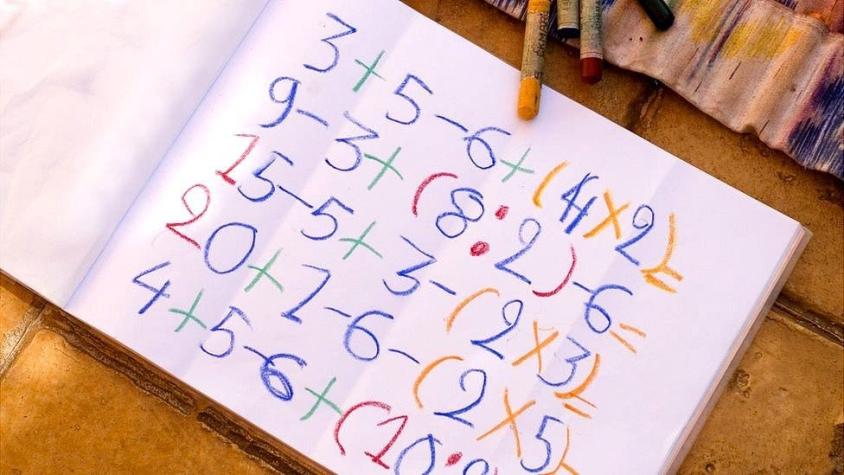 3+5-6+(4×2)=
9-3+(8:2)-6=
15-5+3-(2×3)=
20+1-6-(2×5)=
4+5-6+(10: